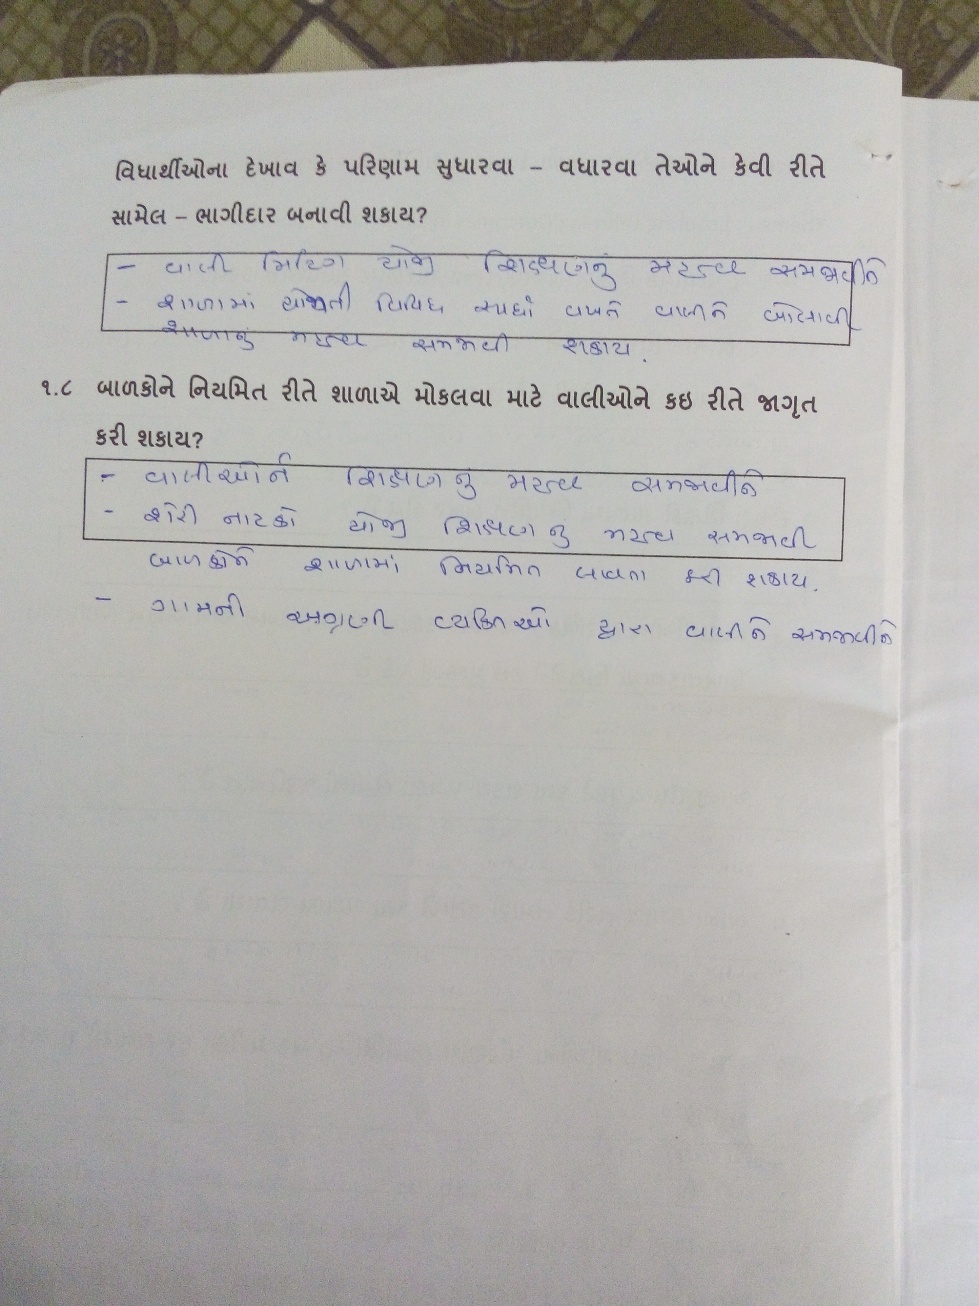 વિદ્યાર્થીઓના દેખાવ કે પરિણામ સુધારવા – વધારવા તેઓને કેવી રીતે
સામેલ – ભાગીદાર બનાવી શકાય?
- વાલી મિટિંગ યોજી શિક્ષણનું મહત્વ સમજાવીને
- શાળામાં યોજાતી વિવિધ સ્પર્ધા વખતે વાલીને બોલાવી
શાળાનું મહત્વ સમજાવી શકાય.
૧.૮ બાળકોને નિયમિત રીતે શાળાએ મોકલવા માટે વાલીઓને કઇ રીતે જાગૃત
કરી શકાય?
- વાલીઓને શિક્ષણનું મહત્વ સમજાવીને
- શેરી નાટકો યોજી શિક્ષણનું મહત્વ સમજાવી
બાળકોને શાળામાં નિયમિત લાવતા કરી શકાય.
- ગામની અગ્રણી વ્યક્તિઓ દ્વારા વાલીને સમજાવીને